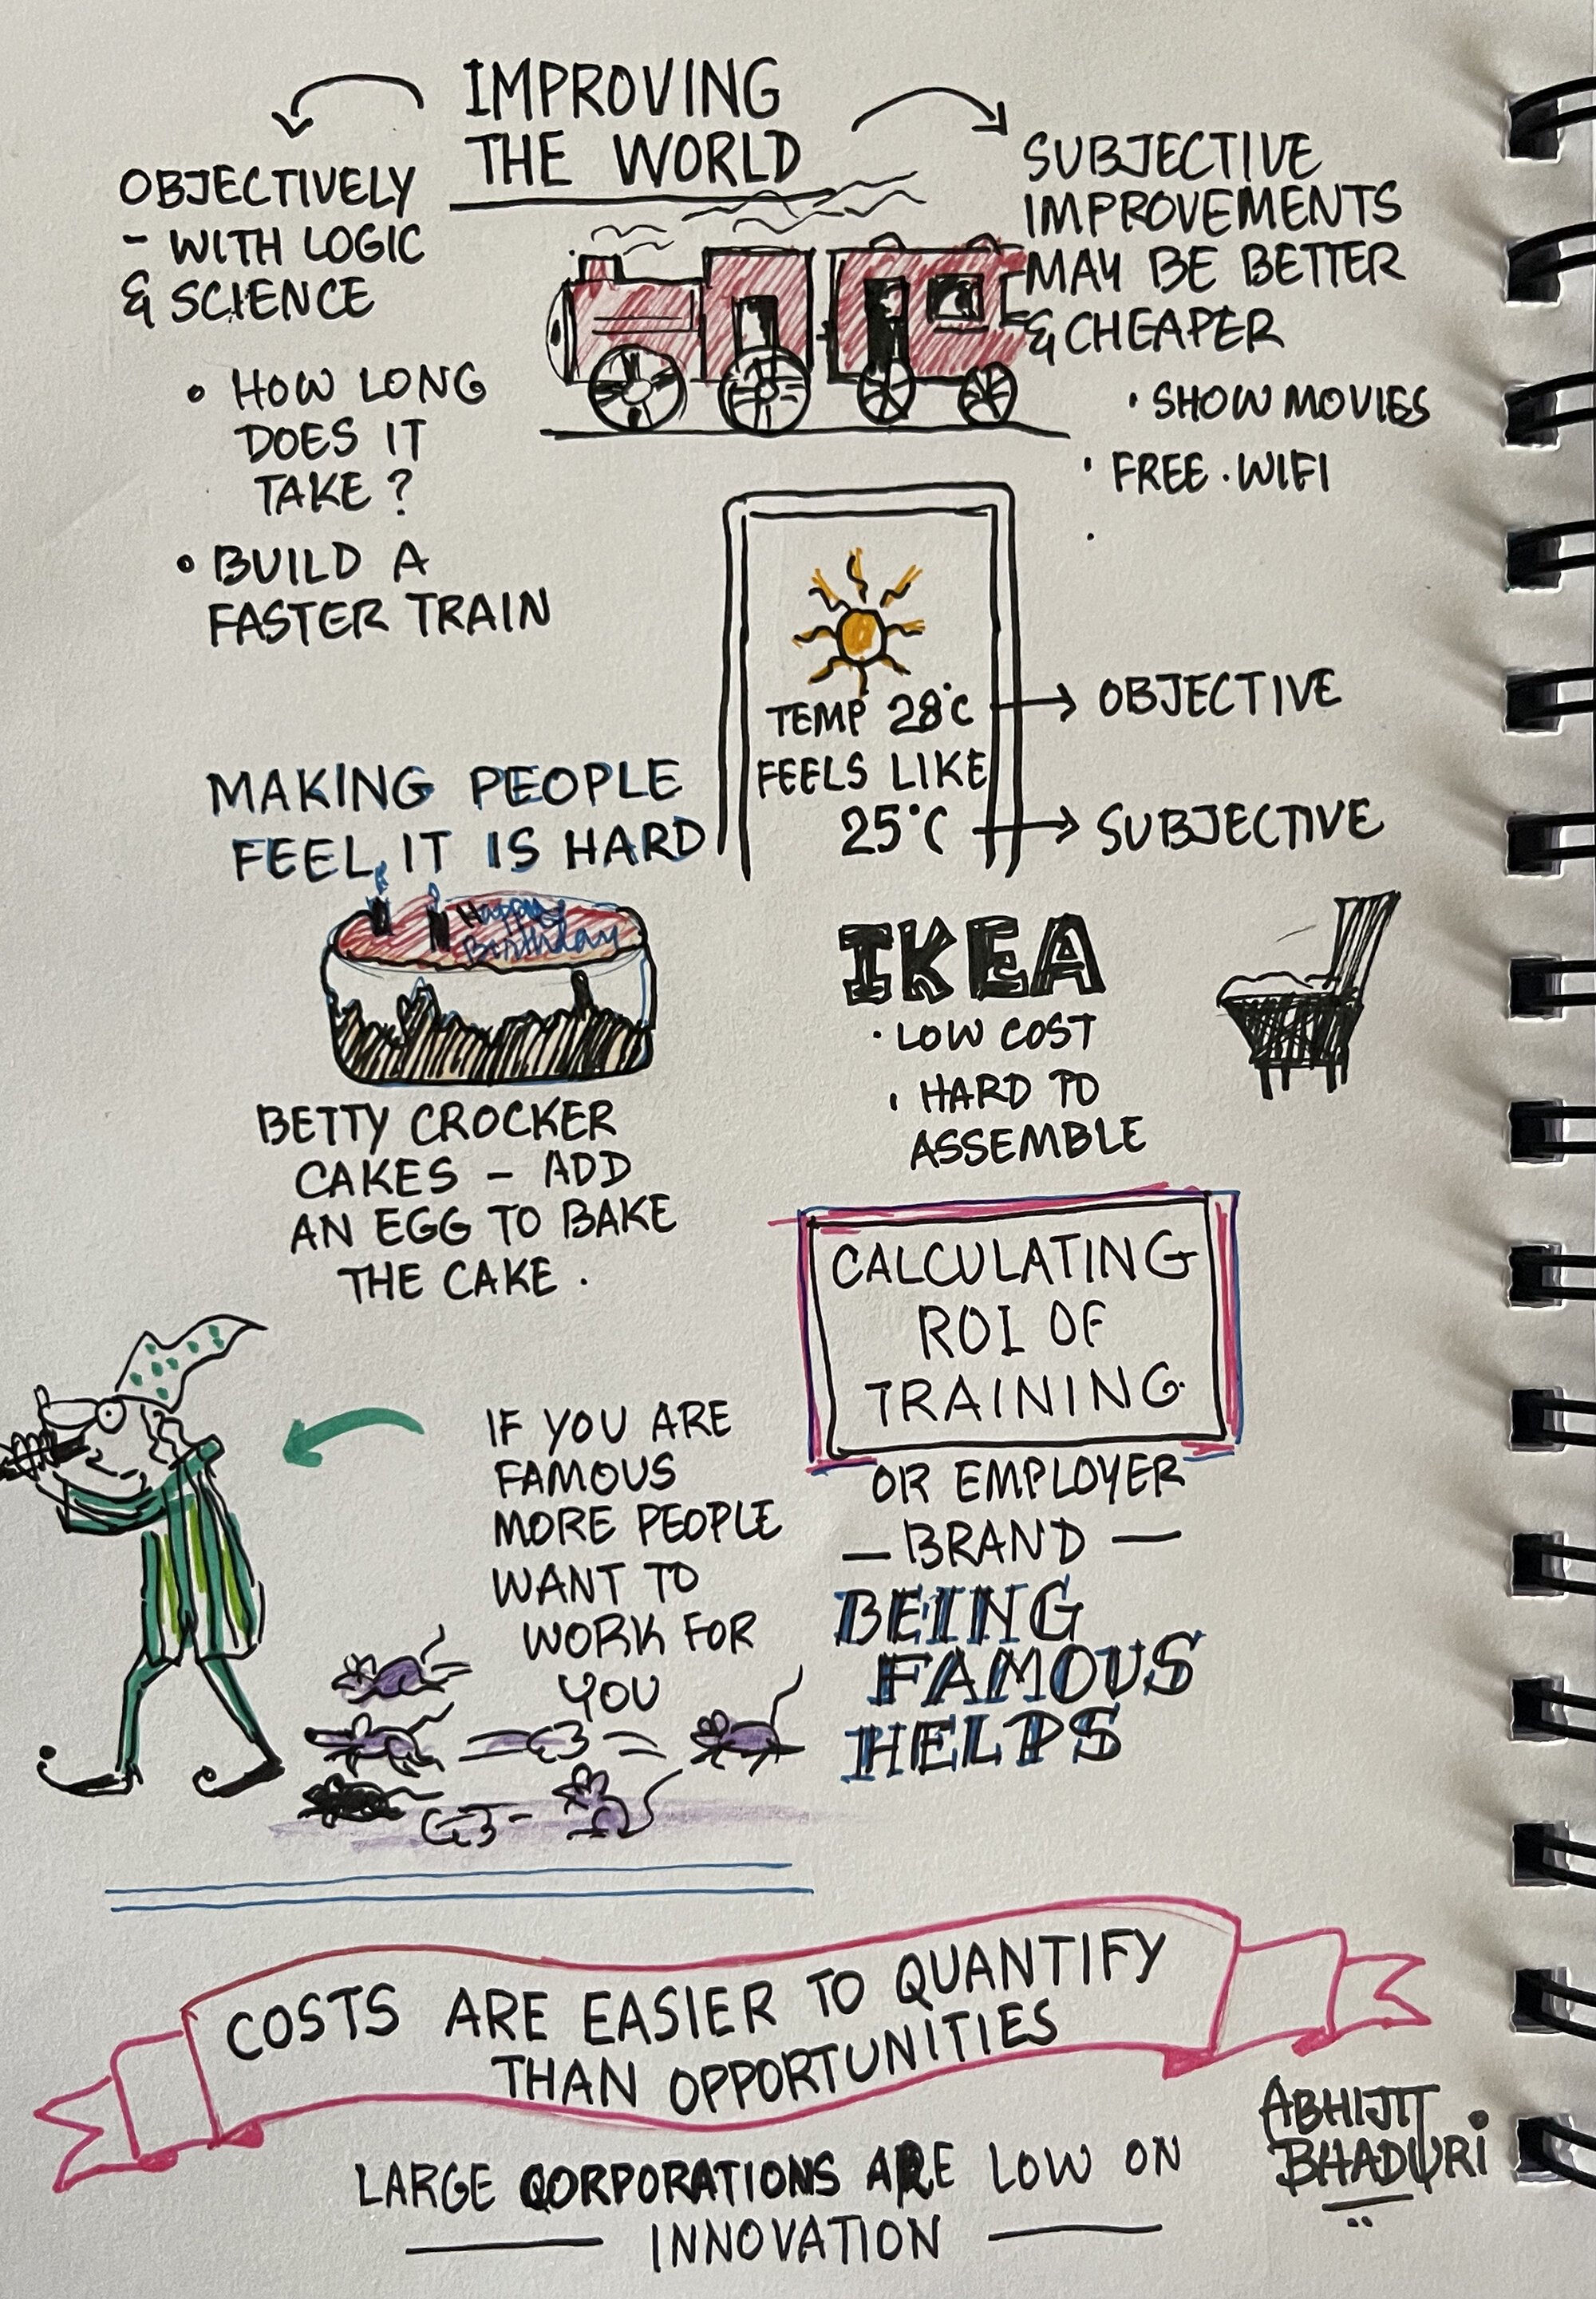 IMPROVING
THE WORLD
OBJECTIVELY
- WITH LOGIC
& SCIENCE
• HOW LONG
DOES IT
TAKE ?
• BUILD A
FASTER TRAIN
SUBJECTIVE
IMPROVEMENTS
MAY BE BETTER
& CHEAPER
• SHOW MOVIES
• FREE . WIFI
TEMP 28°C
FEELS LIKE
25°C
OBJECTIVE
SUBJECTIVE
MAKING PEOPLE
FEEL IT IS HARD
Happy
Birthday
BETTY CROCKER
CAKES - ADD
AN EGG TO BAKE
THE CAKE .
IKEA
• LOW COST
• HARD TO
ASSEMBLE
CALCULATING
ROI OF
TRAINING
OR EMPLOYER
— BRAND —
BEING
FAMOUS
HELPS
IF YOU ARE
FAMOUS
MORE PEOPLE
WANT TO
WORK FOR
YOU
COSTS ARE EASIER TO QUANTIFY
THAN OPPORTUNITIES
LARGE CORPORATIONS ARE LOW ON
— INNOVATION —
ABHIJIT
BHADURI